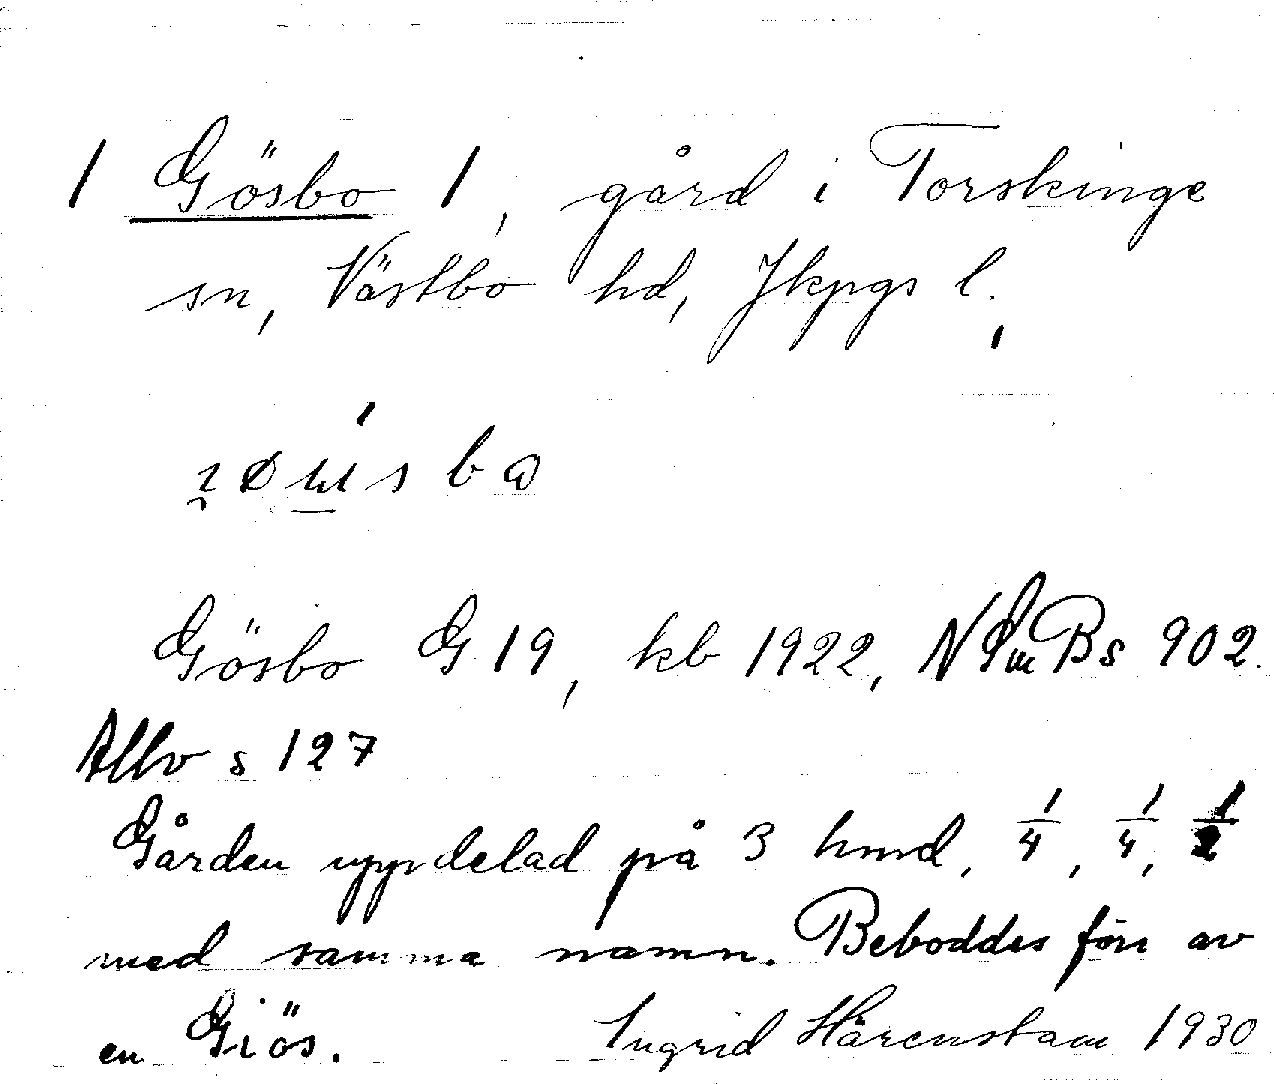 1 Gösbo 1, gård i Torskinge
sn, Västbo hd, Jkpgs l.
Gösbo G 19, kb 1922, NSmBs 902.
Allv s 127
Gården uppdelad på 3 hmd, 1/4, 1/4, 1/2
med samma namn. Beboddes förr av
en Giös. Ingrid Härenstam 1930